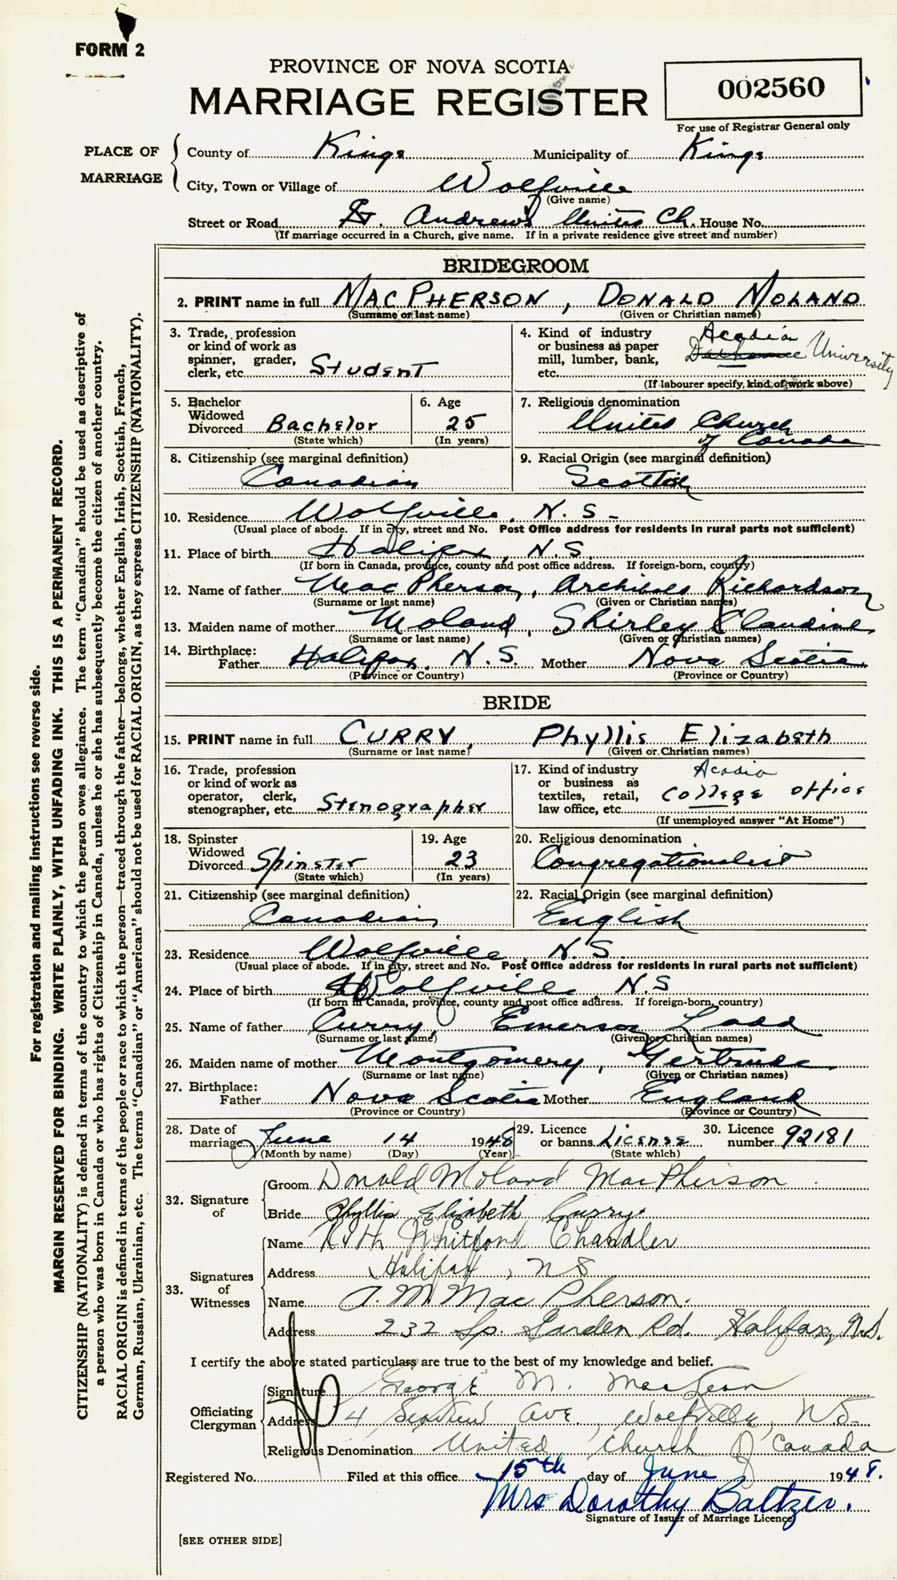 FORM 2
PROVINCE OF NOVA SCOTIA
MARRIAGE REGISTER
002560
For use of Registrar General only
PLACE OF MARRIAGE
County of Kings Municipality of Kings
City, Town or Village of Wolfville
(Give name)
Street or Road St. Andrew's United Ch. House No.
(If marriage occurred in a Church, give name. If in a private residence give street and number)
BRIDEGROOM
2. PRINT name in full MACPHERSON, DONALD MOLAND
(Surname or last name) (Given or Christian names)
3. Trade, profession or kind of work as spinner, grader, clerk, etc. Student
4. Kind of industry or business as paper mill, lumber, bank, etc. Acadia Dalhousie University
(If labourer specify, kind of work above)
5. Bachelor Widowed Divorced Bachelor
(State which)
6. Age 25
(In years)
7. Religious denomination
United Church of Canada
8. Citizenship (see marginal definition)
Canadian
9. Racial Origin (see marginal definition)
Scottish
10. Residence Wolfville, N.S.
(Usual place of abode. If in city, street and No. Post Office address for residents in rural parts not sufficient)
11. Place of birth Halifax, N.S.
(If born in Canada, province, county and post office address. If foreign-born, country)
12. Name of father MacPherson, Archibald Richardson
(Surname or last name) (Given or Christian names)
13. Maiden name of mother Moland, Shirley Claudine
(Surname or last name) (Given or Christian names)
14. Birthplace: Father Halifax, N.S. Mother Nova Scotia
(Province or Country) (Province or Country)
BRIDE
15. PRINT name in full CURRY, Phyllis Elizabeth
(Surname or last name) (Given or Christian names)
16. Trade, profession or kind of work as operator, clerk, stenographer, etc. Stenographer
17. Kind of industry or business as textiles, retail, law office, etc. Acadia College office
(If unemployed answer "At Home")
18. Spinster Widowed Divorced Spinster
(State which)
19. Age 23
(In years)
20. Religious denomination
Congregationalist
21. Citizenship (see marginal definition)
Canadian
22. Racial Origin (see marginal definition)
English
23. Residence Wolfville, N.S.
(Usual place of abode. If in city, street and No. Post Office address for residents in rural parts not sufficient)
24. Place of birth Wolfville N.S
(If born in Canada, province, county and post office address. If foreign-born, country)
25. Name of father Curry, Emerson Ladd
(Surname or last name) (Given or Christian names)
26. Maiden name of mother Montgomery, Gertrude
(Surname or last name) (Given or Christian names)
27. Birthplace: Father Nova Scotia Mother England
(Province or Country) (Province or Country)
28. Date of marriage June 14 1948
(Month by name) (Day) (Year)
29. Licence or banns License
(State which)
30. Licence number 92181
32. Signature of
Groom Donald Moland MacPherson
Bride Phyllis Elizabeth Curry.
33. Signatures of Witnesses
Name Ruth Whitford Chandler
Address Halifax, NS
Name A. M. MacPherson.
Address 232 Sp. Garden Rd. Halifax, N.S.
I certify the above stated particulars are true to the best of my knowledge and belief.
Officiating Clergyman
Signature George M. MacLean
Address 4 Ave Wolfville, NS-
Religious Denomination United Church of Canada
Registered No. Filed at this office 15th day of June 1948.
Mrs Dorothy Baltzer.
Signature of Issuer of Marriage Licence
[SEE OTHER SIDE]
For registration and mailing instructions see reverse side.
MARGIN RESERVED FOR BINDING. WRITE PLAINLY, WITH UNFADING INK. THIS IS A PERMANENT RECORD.
CITIZENSHIP (NATIONALITY) is defined in terms of the country to which the person owes allegiance. The term "Canadian" should be used as descriptive of
a person who was born in Canada or who has rights of Citizenship in Canada, unless he or she has subsequently become the citizen of another country.
RACIAL ORIGIN is defined in terms of the people or race to which the person—traced through the father—belongs, whether English, Irish, Scottish, French,
German, Russian, Ukrainian, etc. The terms "Canadian" or "American" should not be used for RACIAL ORIGIN, as they express CITIZENSHIP (NATIONALITY).